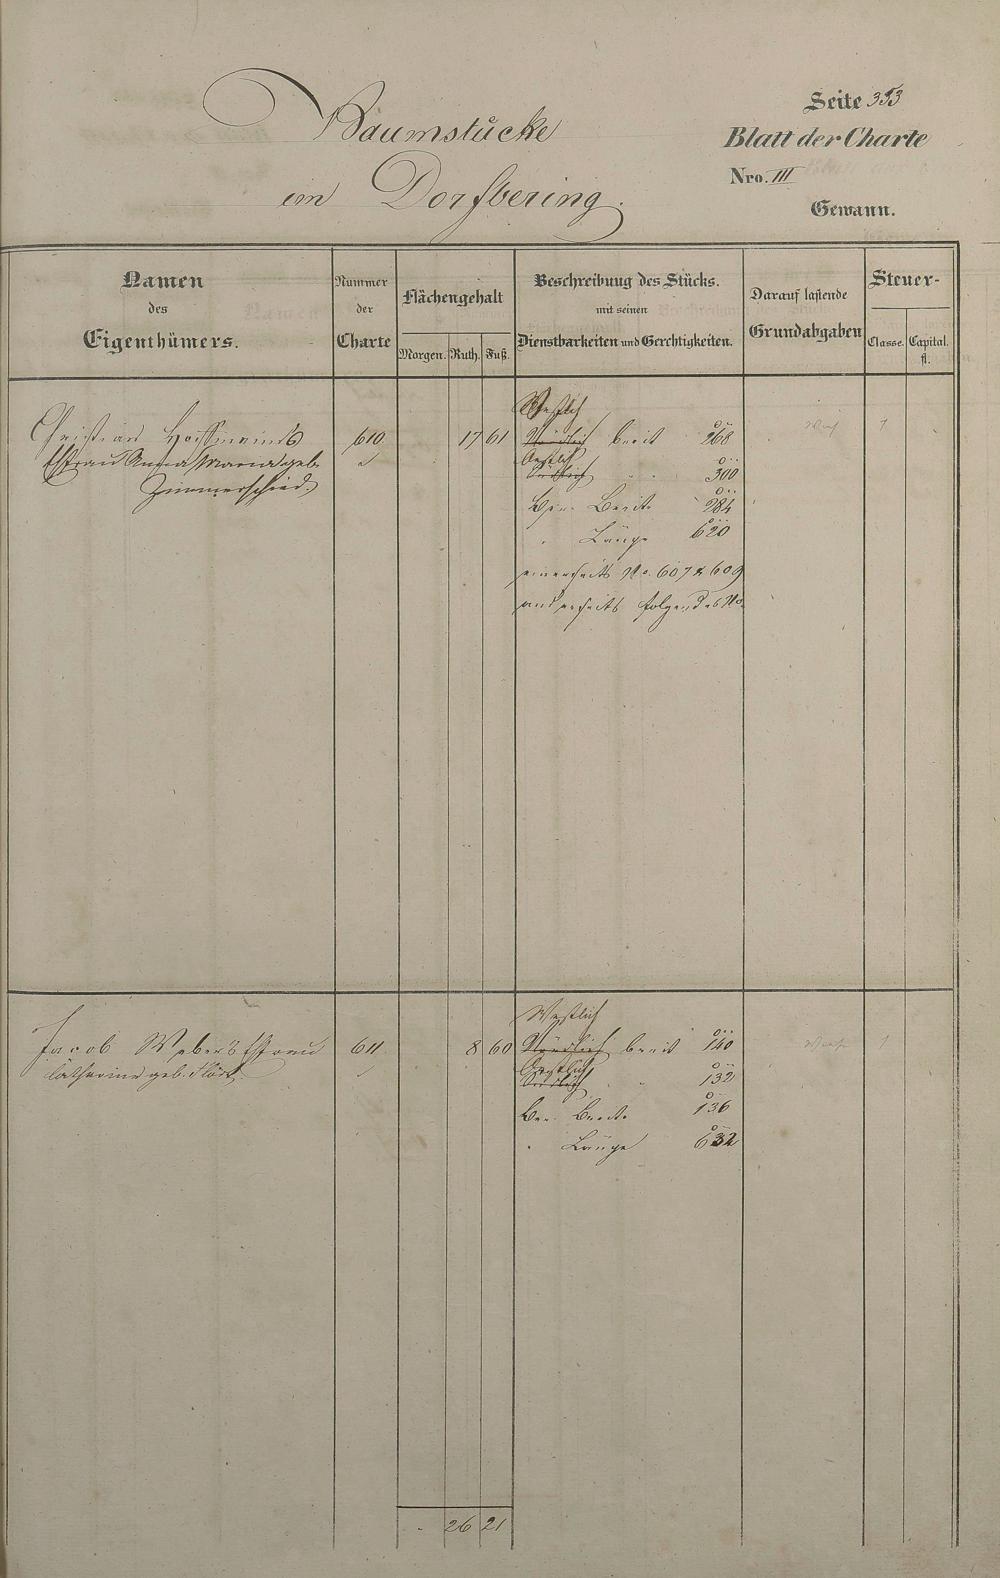 Seite 353
Baumstücke
Blatt der Charte
im Dorfbering.
Nro. III
Gewann.
Namen des Eigenthümers.
Nummer der Charte
Flächengehalt
Morgen. Ruth. Fuß.
Beschreibung des Stücks. mit seinen Dienstbarkeiten und Gerchtigkeiten.
Darauf lastende Grundabgaben
Steuer-
Classe. Capital. fl.
Westlich
Christian Hoffmann's 610 17 61 Nördlich breit 268 1
Ehefrau Anna Maria geb. Oestlich
Zimmerschied. Südlich 300
Ber. Breite 284
" Länge 620
einerseits No. 607 & 609
anderseits folgendes No.
Westlich
Jacob Weber's Ehefrau 611 8 60 Nördlich breit 140 1
Catharine geb. Oestlich
Südlich " 132
Ber. Breite 136
" Länge 632
- 26 21